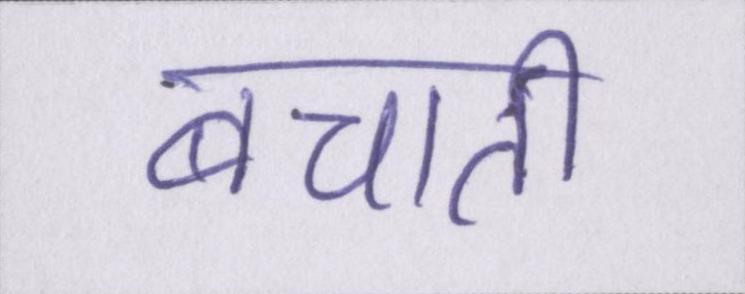 बचाती